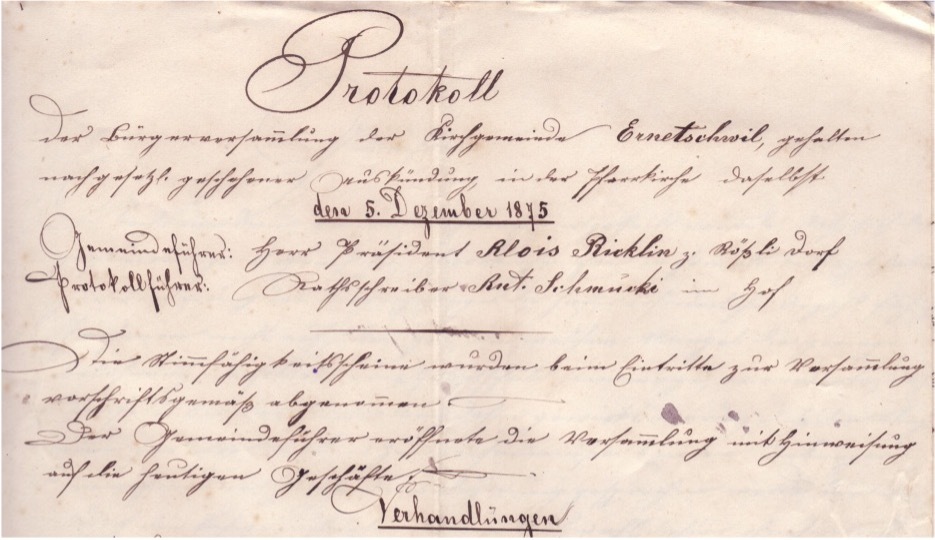 Protokoll
der Bürgerversammlung der Kirchgemeinde Ernetschwil, gehalten
nach gesetzl. geschehener Auskündung, in der Pfarrkirche daselbst
den 5. Dezember 1875
Gemeindeführer: Herr Präsident Alois Ricklin z. Rößli Dorf
Protokollführer: Rathschreiber Ant. Schmucki im Hof
Die Stimmfähigkeitsscheine wurden beim Eintritte zur Versammlung
vorschriftsgemäß abgenommen.
Der Gemeindeführer eröffnete die Versammlung mit Hinweisung
auf die heutigen Geschäfte.
Verhandlungen